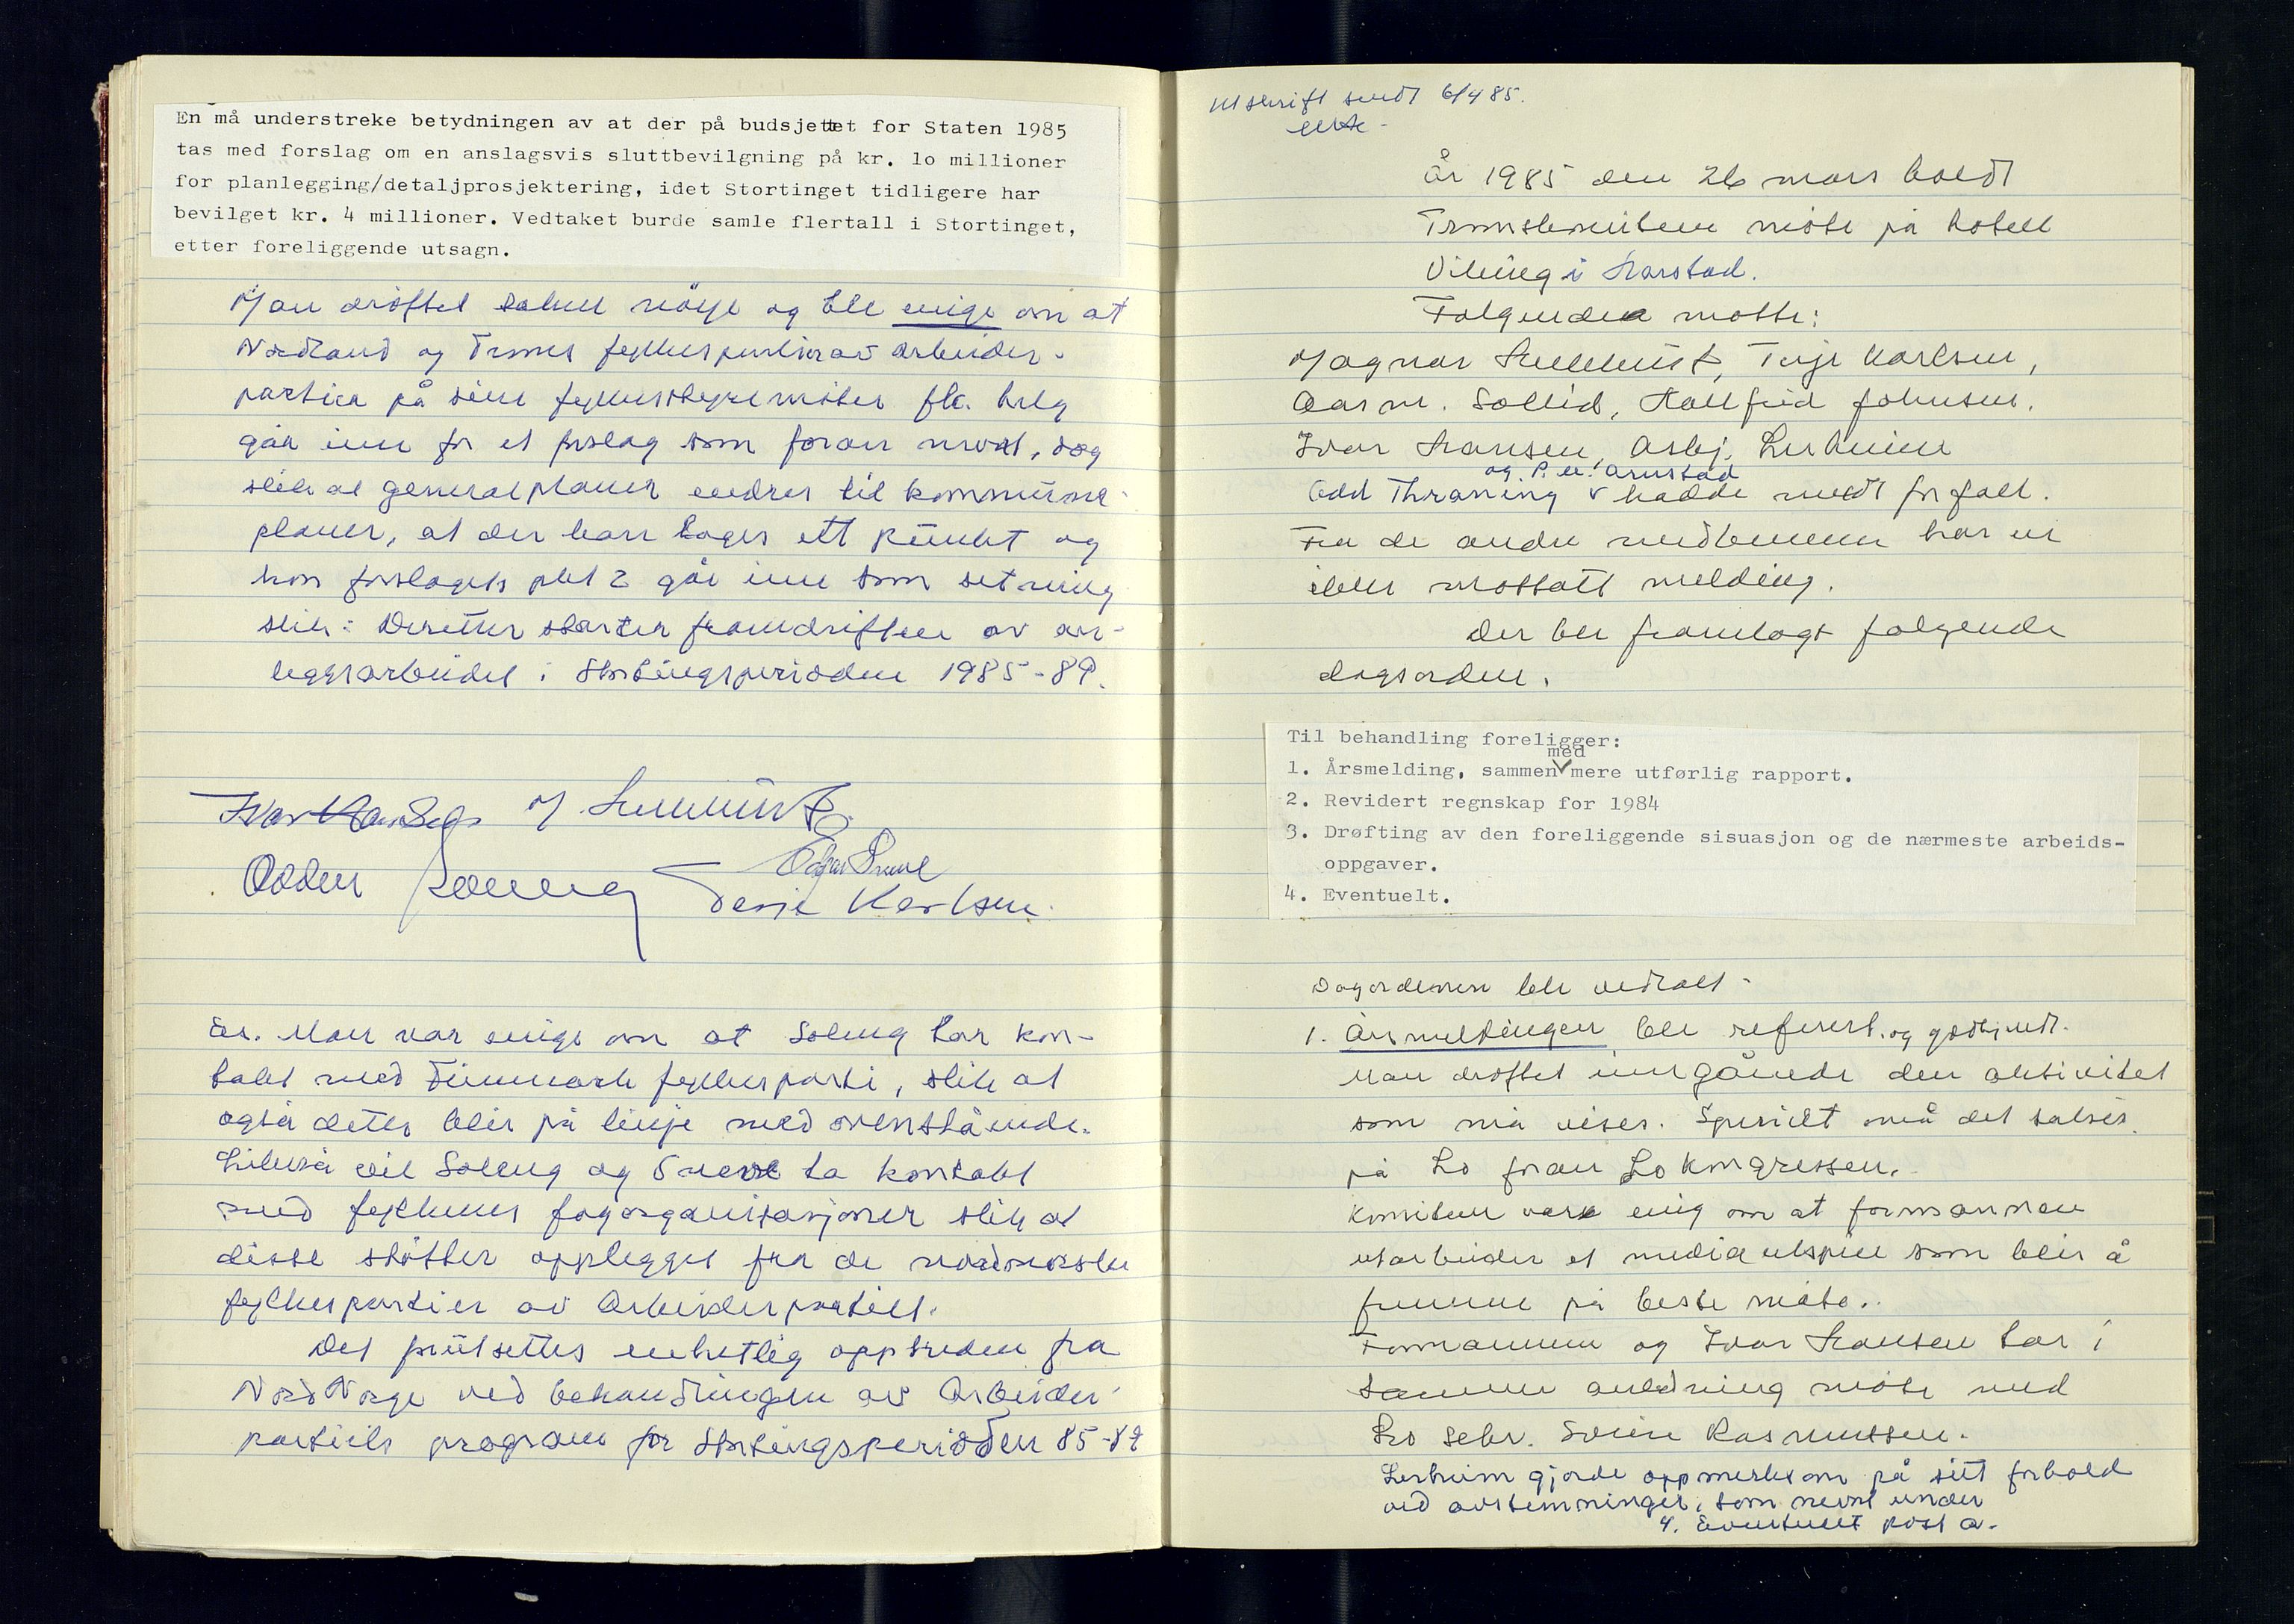 En må understreke betydningen av at der på budsjettet for Staten 1985
tas med forslag om en anslagsvis sluttbevilgning på kr. 10 millioner
for planlegging/detaljprosjektering, idet Stortinget tidligere har
bevilget kr. 4 millioner. Vedtaket burde samle flertall i Stortinget,
etter foreliggende utsagn.
Man drøftet saken nöye og ble enige om at
Nordland og Troms fylkespartier av arbeider-
partiet på sine fylkesstyremöter flk. helg
går inn for et forslag som foran nevnt, dog
slik at generalplaner endres til kommune-
planer, at der bare lages ett punkt og
hvor forslagets pkt 2 går inn som setning
slik: Deretter starter framdriften av an-
leggsarbeidet i Stortingsperioden 1985-89.
Ivar Hansen M.
Odden Terje Karlsen
Es. Man var enige om at Soleng tar kon-
takt med Finnmark fylkesparti, slik at
også dette blir på linje med ovenstående.
Likeså vil Soleng og ta kontakt
med fylkenes fagorganisasjoner slik at
disse støtter opplegget fra de nordnorske
fylkespartier av Arbeiderpartiet.
Det forutsettes enhetlig opptreden fra
Nord Norge ved behandlingen av Arbeider-
partiets program for Stortingsperioden 85-89
Utskrift sendt 6/4 85.
År 1985 den 26 mars holdt
Tromskomiteen møte på hotell
Viking i Harstad.
Følgende møtte:
Magnar Terje Karlsen,
Aasm. Sollid, Hallfrid Johnsen,
Ivar Hansen, Asbj. Lerheim
og P. M. Arnstad
Odd Thraning v hadde meldt forfall.
Fra de andre medlemmer har vi
ikke mottatt melding.
Der ble framlagt følgende
dagsorden.
Til behandling foreligger:
med
1. Årsmelding, sammen mere utførlig rapport.
2. Revidert regnskap for 1984
3. Drøfting av den foreliggende sisuasjon og de nærmeste arbeids-
oppgaver.
4. Eventuelt.
Dagordenen ble vedtatt -
1. Årsmeldingen ble referert. og godkjendt.
Man drøftet inngående den aktivitet
som må vises. Spesielt må det satses
på Lo foran Lo kongressen.
Komiteen var enig om at formannen
utarbeider et media utspill som blir å
fremme på beste måte.
Formannen og Ivar Hansen tar i
samme anledning møte med
Lo sekr. Svein Rasmussen.
Lerheim gjorde oppmerksom på sitt forhold
ved avstemninger, som nevnt under
4. Eventuelt post a.